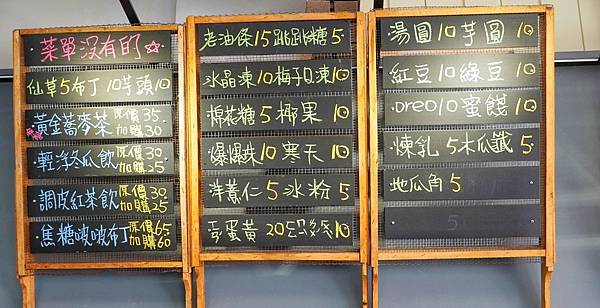 ·菜單沒有的☆
仙草5布丁10芋頭10
黃金蕎麥茶 原價35. 加購30
輕浮冬瓜飲 原價30. 加購25
調皮紅茶飲 原價30 加購25
·焦糖啵啵布丁 原價65 加購60
老油條15跳跳糖5
水晶凍10梅子Q凍10
棉花糖5椰果10
爆爆珠10寒天10
洋薏仁5冰粉5
蛋黃20 10
湯圓10芋圓10
紅豆10綠豆10
·oreo10蜜餞10
·煉乳5木瓜籤5
·地瓜角5